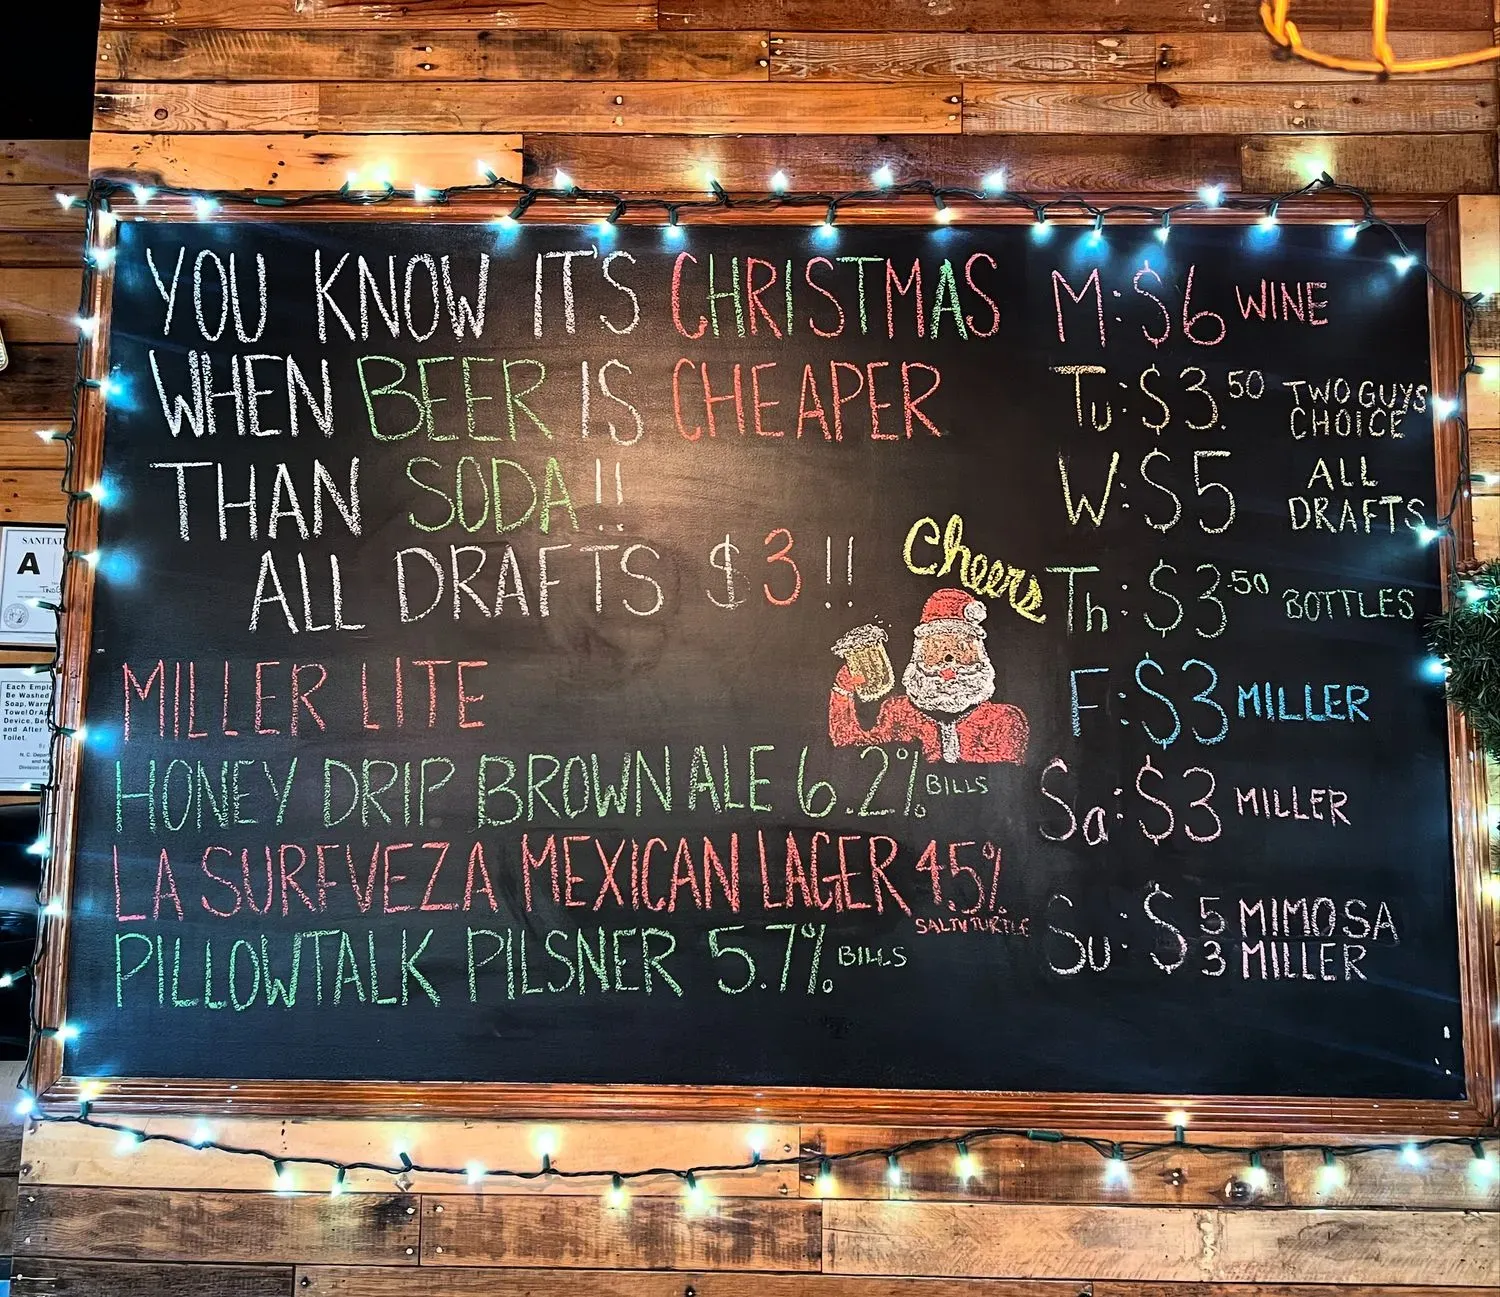 YOU KNOW IT'S CHRISTMAS
WHEN BEER IS CHEAPER
THAN SODA!!
ALL DRAFTS $3!!
Cheers
MILLER LITE
HONEY DRIP BROWN ALE 6.2% BILLS
LA SURFVEZA MEXICAN LAGER 4.5%
SALTY TURTLE
PILLOWTALK PILSNER 5.7% BILLS
M: $6 WINE
Tu: $3.50 TWO GUYS
CHOICE
W: $5 ALL
DRAFTS
Th: $3.50 BOTTLES
F: $3 MILLER
Sa: $3 MILLER
Su: $5 MIMOSA
3 MILLER
SANITAT
A
Each Emplo
Be Washed
Soap, Warm
Towel Or
Device, Bef
and After
Toilet.
By
N.C. Depar
and
Division of